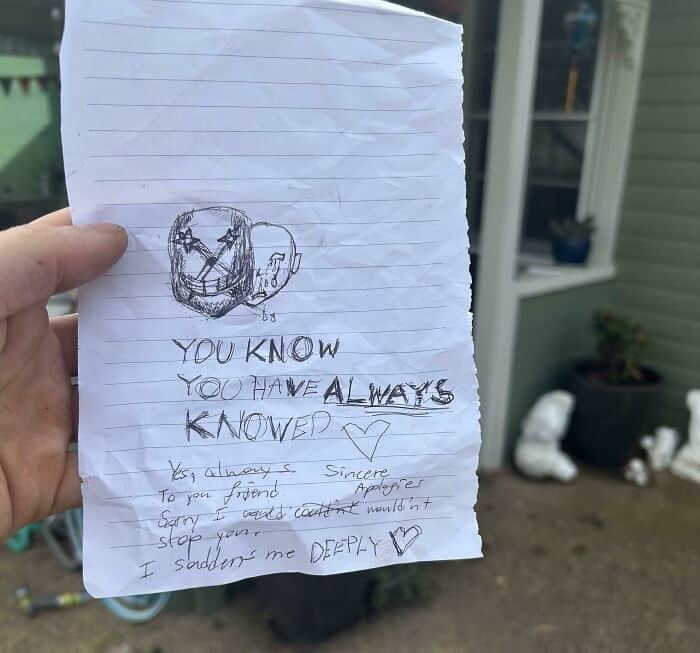 YOU KNOW
YOU HAVE ALWAYS
KNOWED
Yes, always Sincere
To you friend. Apologies
Sorry I could couldn't wouldn't
stop you.
I saddens me DEEPLY